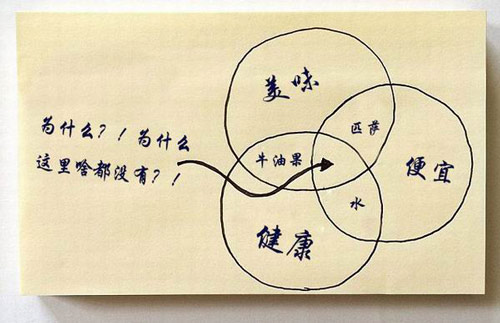 美味
为什么？！为什么
这里啥都没有？！
匹萨
牛油果
便宜
水
健康